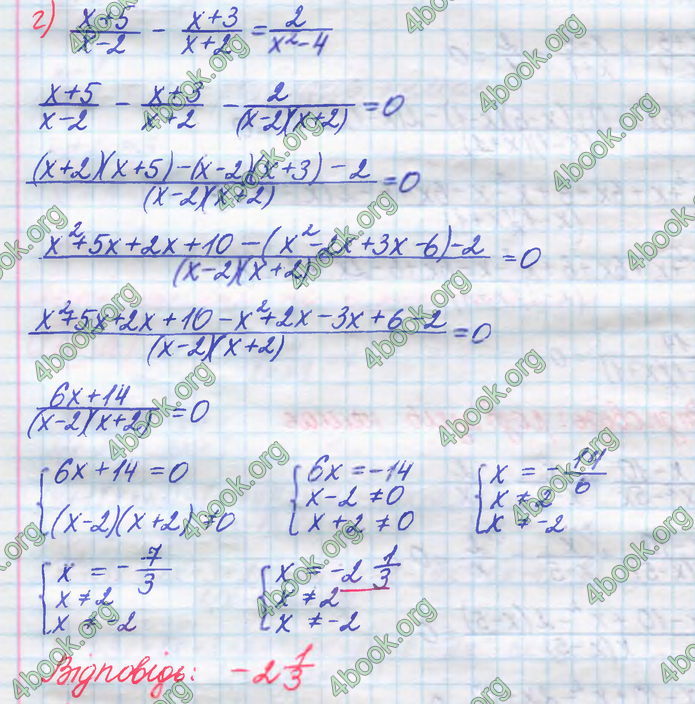 г) (x+5)/(x-2) - (x+3)/(x+2) = 2/(x²-4)
(x+5)/(x-2) - (x+3)/(x+2) - 2/((x-2)(x+2)) = 0
((x+2)(x+5)-(x-2)(x+3)-2)/((x-2)(x+2)) = 0
(x²+5x+2x+10-(x²-2x+3x-6)-2)/((x-2)(x+2)) = 0
(x²+5x+2x+10-x²+2x-3x+6-2)/((x-2)(x+2)) = 0
(6x+14)/((x-2)(x+2)) = 0
{ 6x+14=0
(x-2)(x+2)≠0
{ 6x=-14
x-2≠0
x+2≠0
{ x = -14/6
x≠2
x≠-2
{ x = -7/3
x≠2
x≠-2
{ x = -2 1/3
x≠2
x≠-2
Відповідь: -2 1/3
4book.org